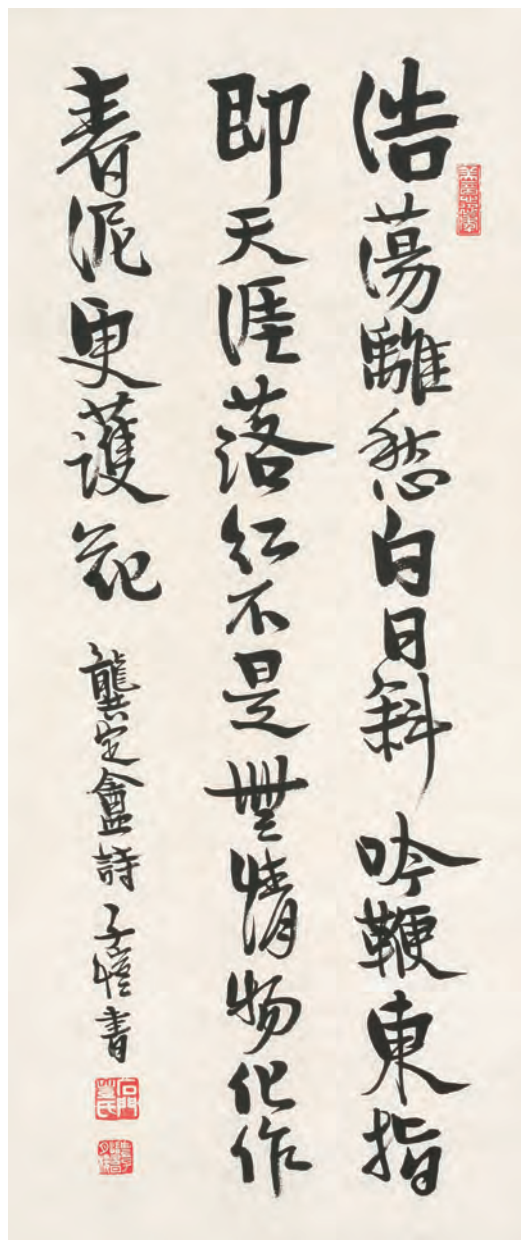 浩蕩離愁白日斜吟鞭東指
即天涯落紅不是無情物化作
春泥更護花
龔定盦詩子愷書
石門豐氏